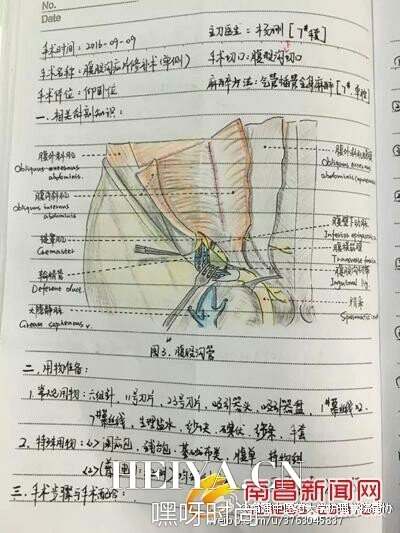 No.
Date
手术时间：2016-09-09
主刀医生：杨刚 [7#楼]
手术名称：腹股沟疝片修补术（单侧）
手术切口：腹股沟切口
手术体位：仰卧位
麻醉方法：气管插管全身麻醉
一、相关解剖知识：
腹外斜肌
Obliquus externus
abdominis.
腹内斜肌
Obliquus internus
abdominis
提睾肌
Cremaster
输精管
Deferent duct.
大隐静脉
Great saphenous v.
腹外斜肌腱膜
Obliquus externus
abdominis (aponeurosis)
腹壁下动脉
Inferior epigastric a.
腹横筋膜
Transverse fascia
腹股沟韧带
Inguinal lig.
精索
Spermatic cord
图3. 腹股沟管
二、用物准备：
1. 常规用物：六组针，11号刀片，23号刀片，吸引器头，吸引器盘，1#慕丝线×2，
7#慕丝线，生理盐水，纱块，石碳仿，手套
2. 特殊用物：<1> 剖腹包，辅助包，基础布类，腹单，特物招
<2>
三、手术步骤与手术配合：
HEIYA.CN
嘿呀时尚
南昌新闻网
@南通中医药大学护理学院青协
weibo.com/u/3763045837